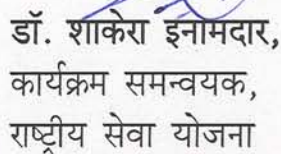 डॉ. शाकेरा इनामदार,
कार्यक्रम समन्वयक,
राष्ट्रीय सेवा योजना